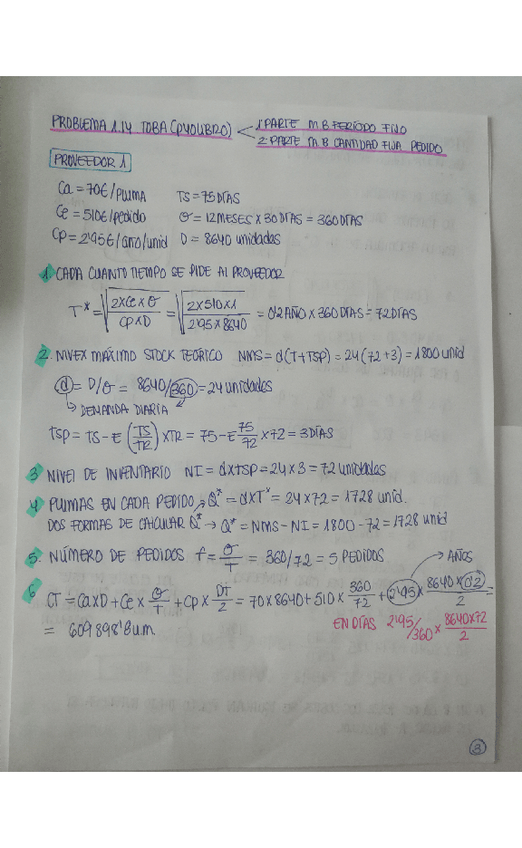 PROBLEMA 1.14 TOBA (PYOLIBRO) < 1 PARTE M.B PERÍODO FIJO
2 PARTE M B CANTIDAD FIJA PEDIDO
PROVEEDOR 1
Ca = 70€/PLUMA TS = 75 DÍAS
Ce = 510€/pedido θ = 12 MESES X 30 DÍAS = 360 DÍAS
Cp = 2'95€/año/unid D = 8640 unidades
1. CADA CUANTO TIEMPO SE PIDE AL PROVEEDOR
T* = √(2 x Ce x θ / Cp x D) = √(2 x 510 x 1 / 2'95 x 8640) = 0'2 AÑO x 360 DÍAS = 72 DÍAS
2. NIVEL MÁXIMO STOCK TEÓRICO NMS = d(T+TSP) = 24(72+3) = 1800 unid
d = D/θ = 8640/360 = 24 unidades
↳ DEMANDA DIARIA
TSP = TS - E (TS/TR) x TR = 75 - E 75/72 x 72 = 3 DÍAS
3 NIVEL DE INVENTARIO NI = d x tsp = 24 x 3 = 72 unidades
4 PLUMAS EN CADA PEDIDO → Q* = d x T* = 24 x 72 = 1728 unid.
DOS FORMAS DE CALCULAR Q* → Q* = NMS - NI = 1800 - 72 = 1728 unid
5. NÚMERO DE PEDIDOS f = θ/T = 360/72 = 5 PEDIDOS
→ AÑOS
6 CT = Ca x D + Ce x θ/T + Cp x DT/2 = 70 x 8640 + 510 x 360/72 + 2'95 x 8640 x 0'2/2 =
= 609898'8 um. EN DÍAS 2'95/360 x 8640x72/2
3